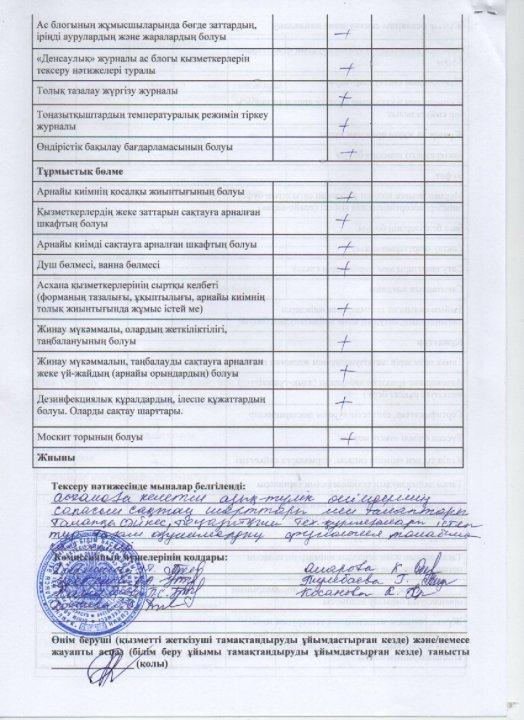 Ас блогының жұмысшыларында бөгде заттардың,
іріңді аурулардың және жаралардың болуы +
«Денсаулық» журналы ас блогы қызметкерлерін
тексеру нәтижелері туралы +
Толық тазалау жүргізу журналы +
Тоңазытқыштардың температуралық режимін тіркеу
журналы +
Өндірістік бақылау бағдарламасының болуы +
Тұрмыстық бөлме
Арнайы киімнің қосалқы жиынтығының болуы +
Қызметкерлердің жеке заттарын сақтауға арналған
шкафтың болуы +
Арнайы киімді сақтауға арналған шкафтың болуы +
Душ бөлмесі, ванна бөлмесі +
Асхана қызметкерлерінің сыртқы келбеті
(форманың тазалығы, ұқыптылығы, арнайы киімнің
толық жиынтығында жұмыс істей ме) +
Жинау мүкәммалы, олардың жеткіліктілігі,
таңбалануының болуы +
Жинау мүкәммалын, таңбалауды сақтауға арналған
жеке үй-жайдың (арнайы орындардың) болуы +
Дезинфекциялық құралдардың, ілеспе құжаттардың
болуы. Оларды сақтау шарттары. +
Москит торының болуы +
Жиыны
Тексеру нәтижесінде мыналар белгіленді:
асханаға келетін азық-түлік өнімдерінің
сапасын сақтау шарттары мен талаптары
талапқа сәйкес,
Комиссия мүшелерінің қолдары:
Омарова К.
Г.
Косанова К.
Өнім беруші (қызметті жеткізуші тамақтандыруды ұйымдастырған кезде) және/немесе
жауапты аспаз (білім беру ұйымы тамақтандыруды ұйымдастырған кезде) танысты
(қолы)